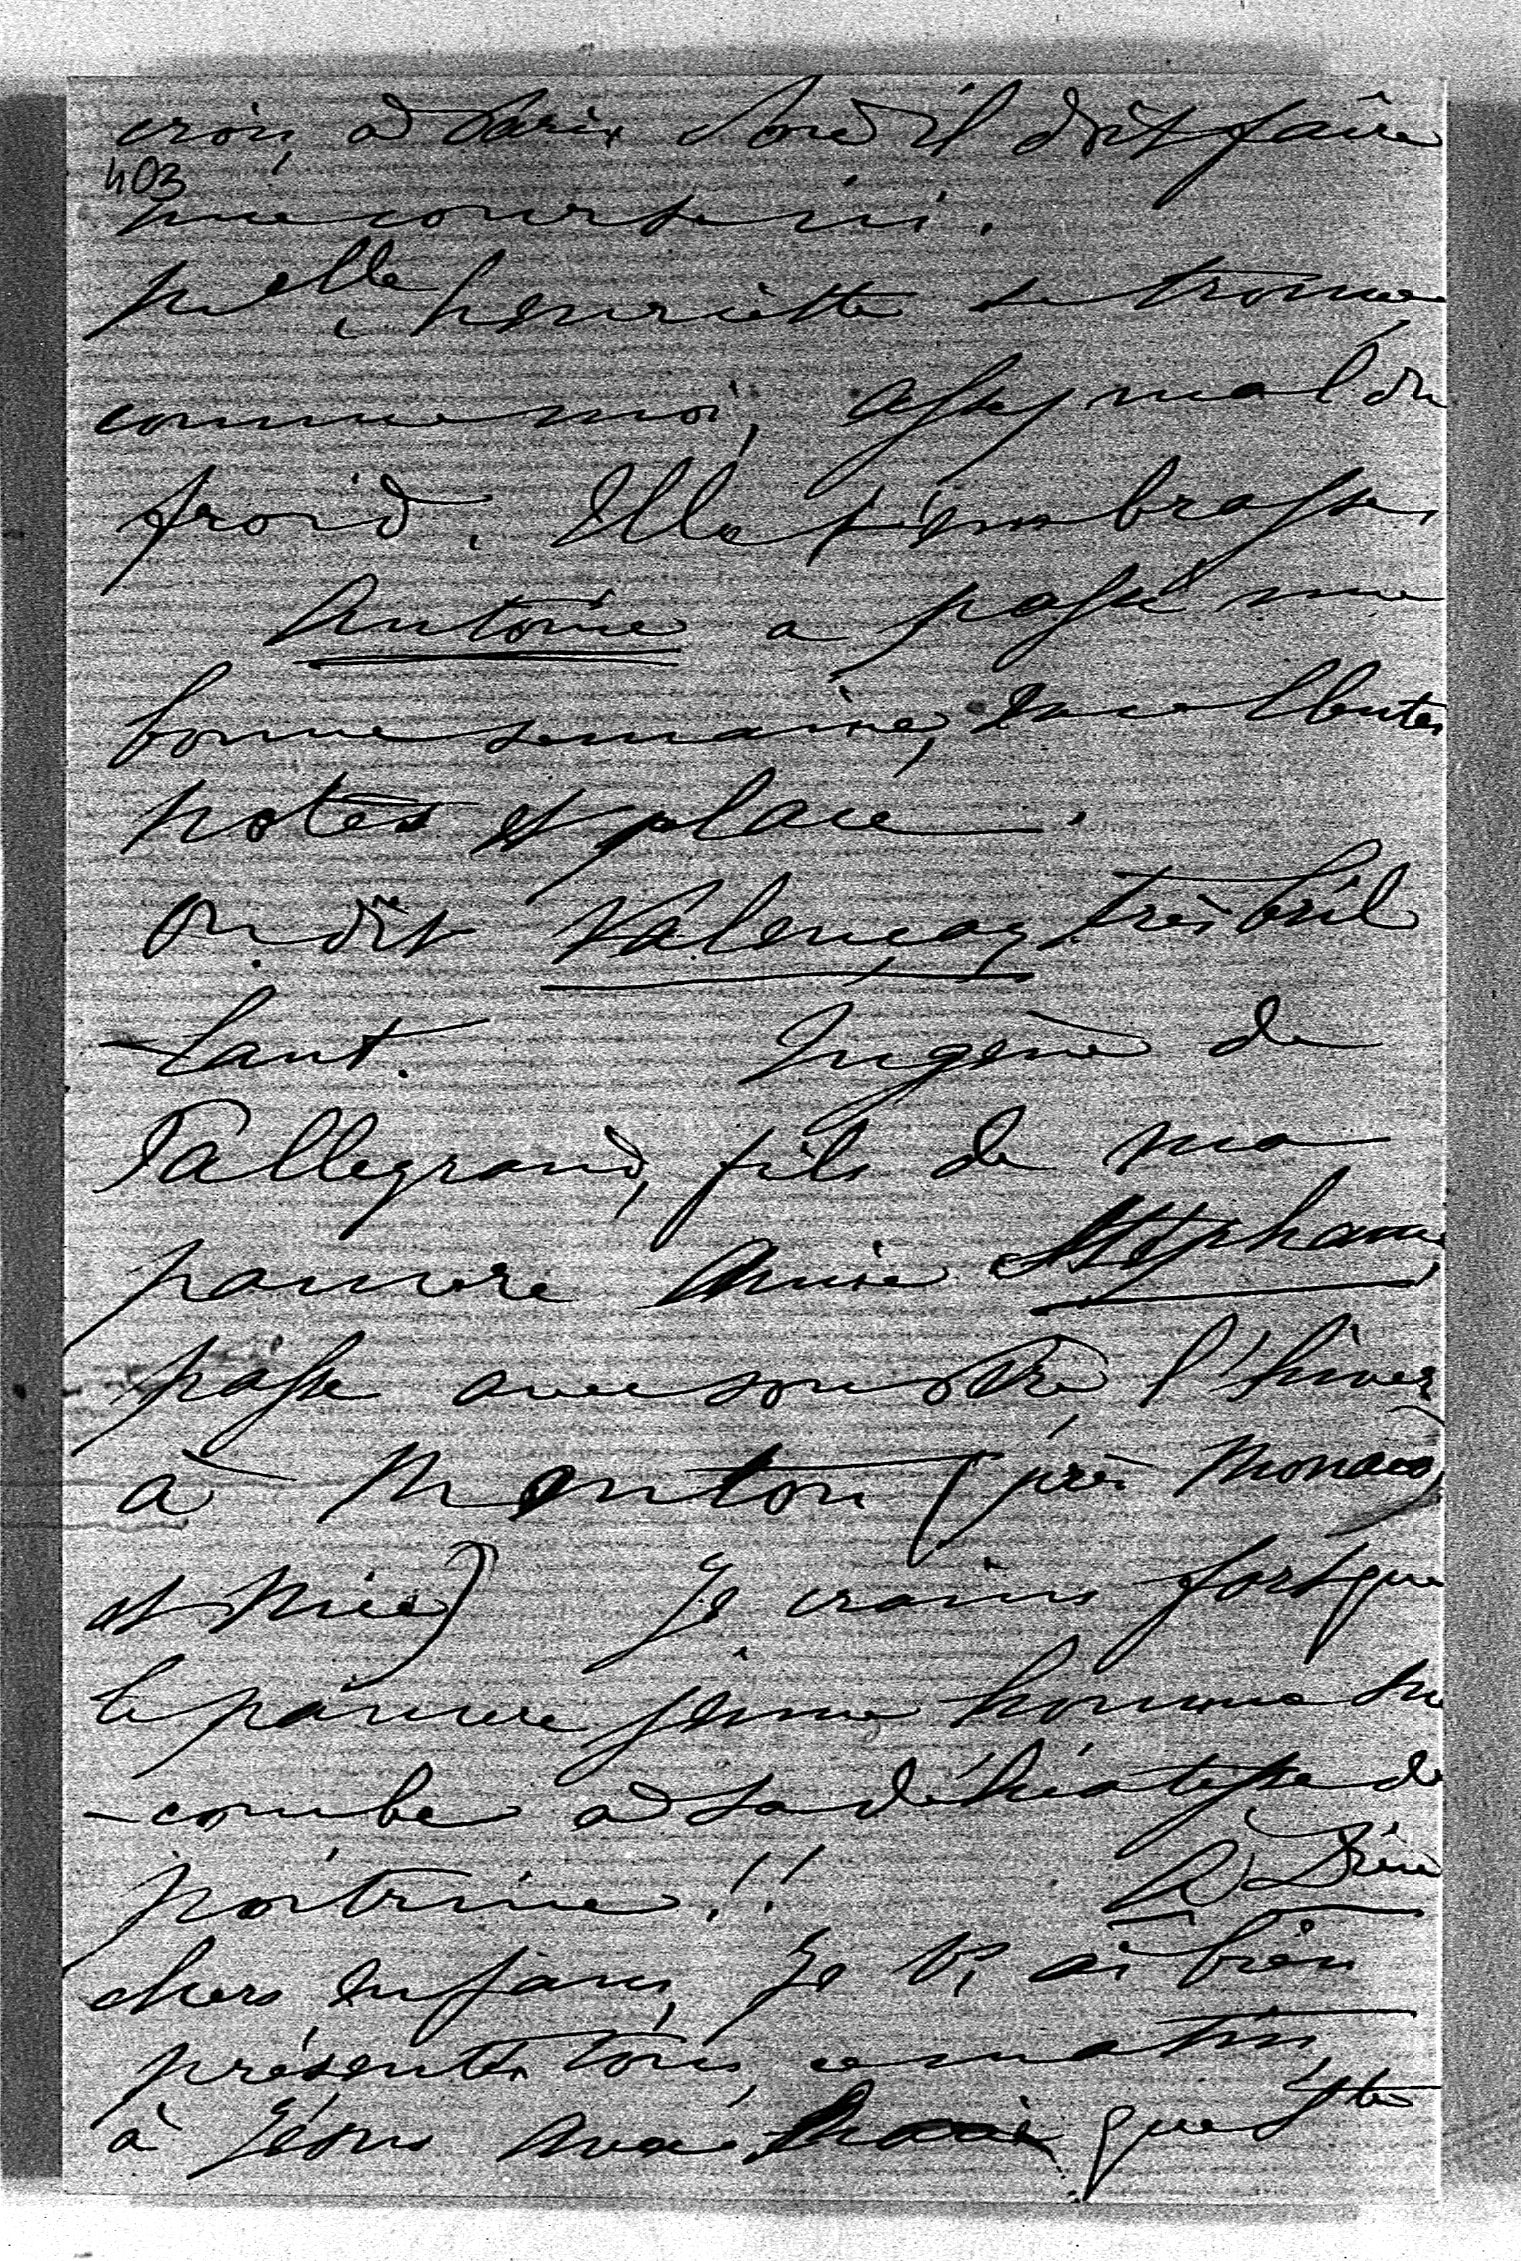 crois, à Paris d'où il doit faire
403
une course ici.
Melle henriette se trouve
comme moi, assez mal du
froid. Elle t'embrasse,
Antoine a passé une
bonne semaine, excellentes
notes et place.
On dit Valençay très bril
-lant. Eugène de
Tallegrand, fils de ma
pauvre Amie Stéphanie
passe avec son Père l'hiver
à Menton (près Monaco
et Nice) Je crains fort que
le pauvre jeune homme suc
-combe à sa délicatesse de
poitrine!! À Dieu
chers enfans, Je vs ai bien
présentés tous, ce matin,
à Jésus que Ste